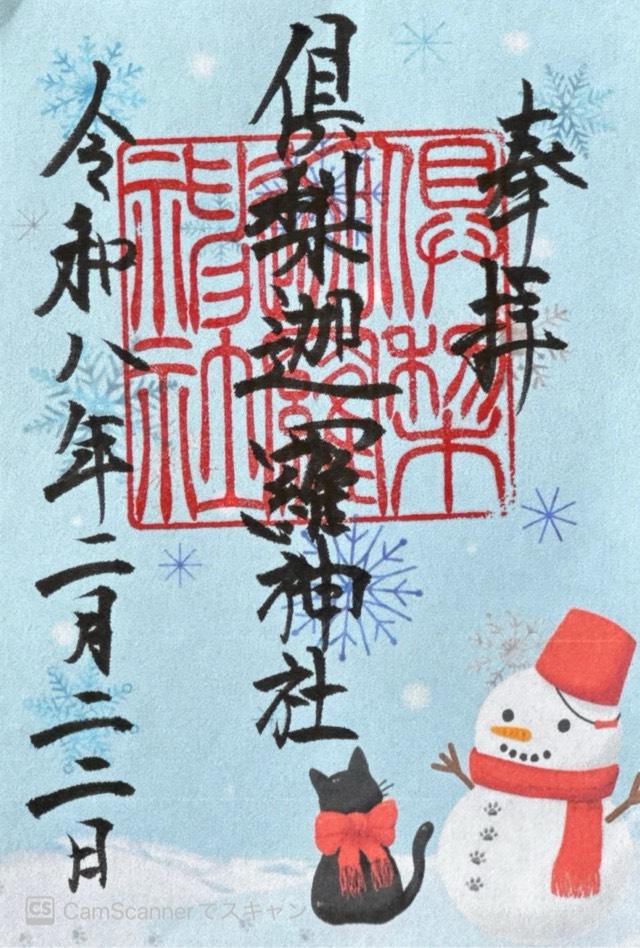 奉拝
倶梨迦羅神社
令和八年二月二二日
倶梨
神社
CS CamScannerでスキャン